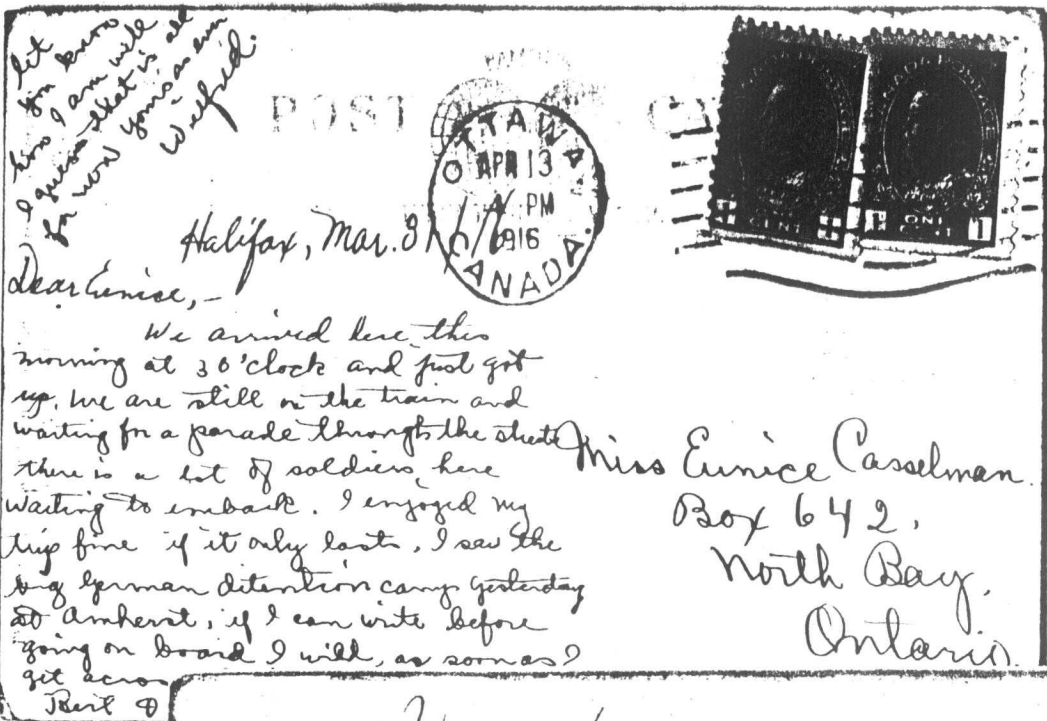 let
you know
how I am will
I guess that is all
for now yours as ever
Wilfrid.
POST CA
OTTAWA.
APR 13
PM
1916
CANADA.
ONE
CENT
1
CENT
Halifax, Mar. 31/16
Dear Eunice,-
We arrived here this
morning at 3 o'clock and just got
up. We are still on the train and
waiting for a parade through the streets
there is a lot of soldiers here
waiting to embark. I enjoyed my
trip fine if it only lasts. I saw the
big German detention camp yesterday
at Amherst, if I can write before
going on board I will, as soon as I
get across
Bert &
Miss Eunice Casselman.
Box 642,
North Bay,
Ontario.